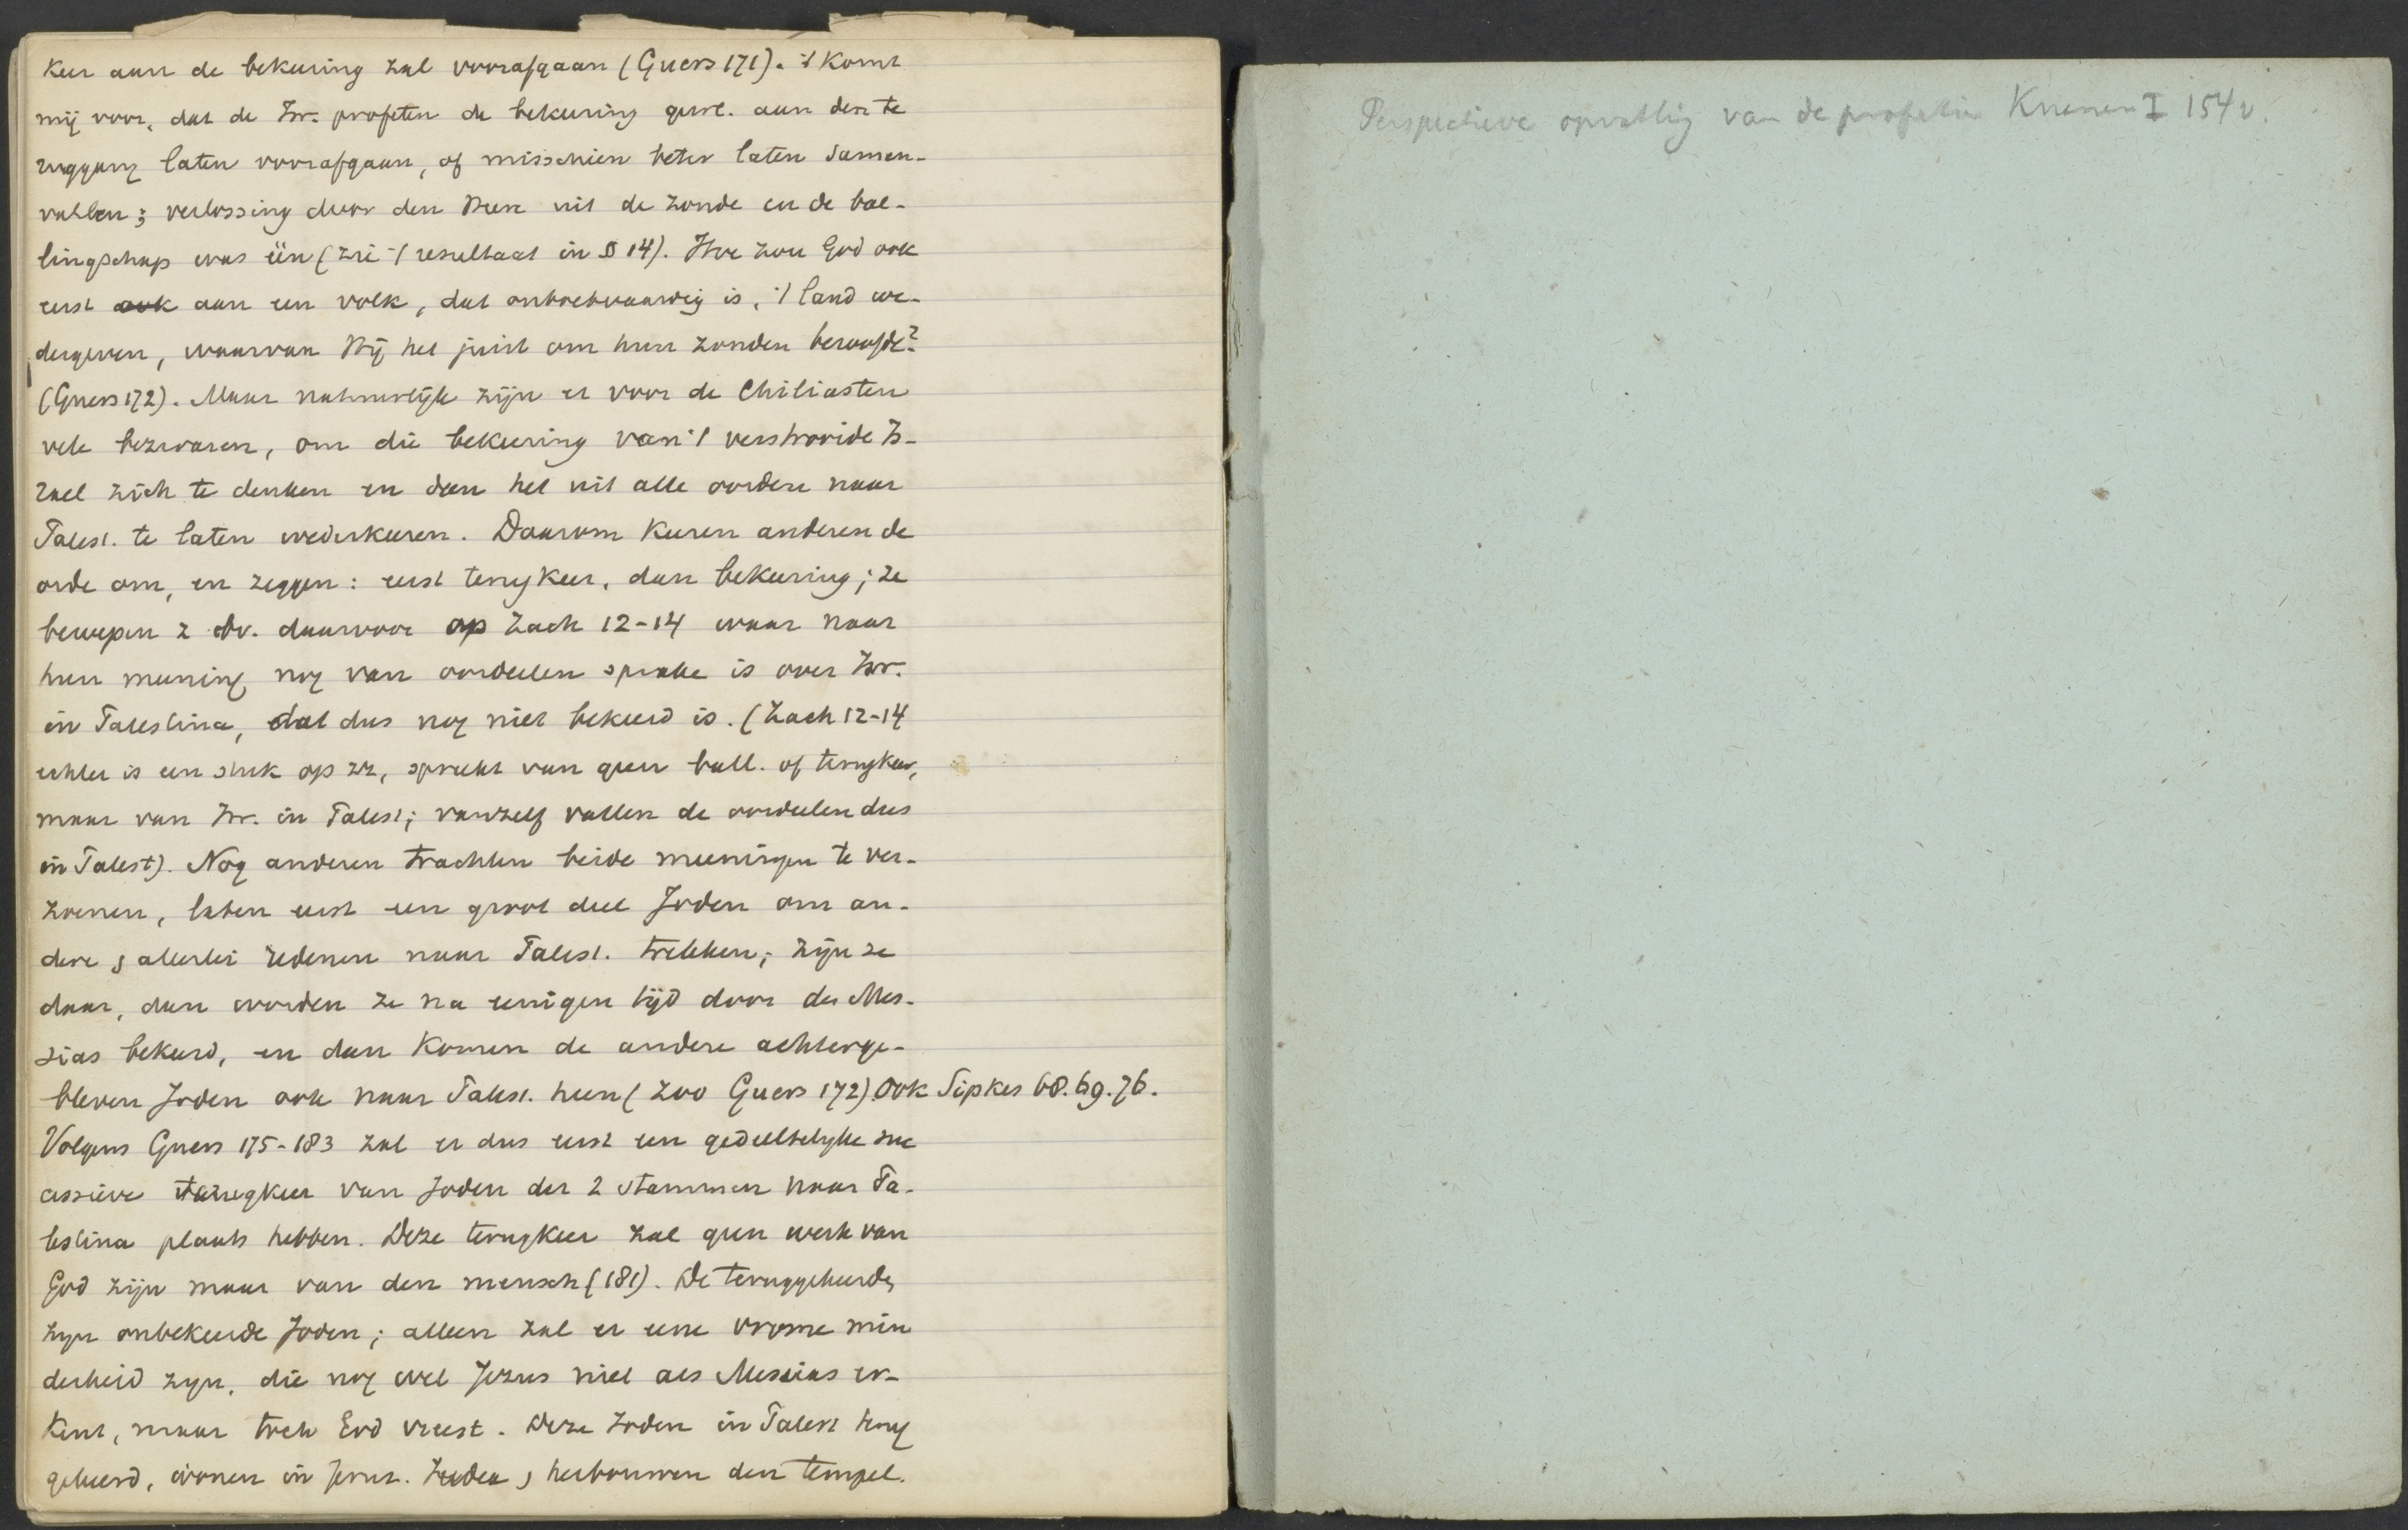 keer aan de bekeering zal voorafgaan (Guers 171). 't Komt
mij voor, dat de Isr. profeten de bekeering gewl. aan den te
ruggang laten voorafgaan, of misschien beter laten samen-
vallen; verlossing door den Heer uit de zonde en de bal-
lingschap was één (zie 't resultaat in § 14). Hoe zou God ook
eerst ook aan een volk, dat onboetvaardig is, 't land we-
dergeven, waarvan Hij het juist om hun zonden beroofde?
(Guers 172). Maar natuurlijk zijn er voor de Chiliasten
vele bezwaren, om die bekeering van 't verstrooide Is-
rael zich te denken en dan het uit alle oorden naar
Palest. te laten wederkeeren. Daarom keeren anderen de
orde om, en zeggen: eerst terugkeer, dan bekeering; ze
beroepen z dv. daarvoor op Zach 12-14 waar naar
hun meening nog van oordeelen sprake is over Isr.
in Palestina, dat dus nog niet bekeerd is. (Zach 12-14
echter is een stuk op zz, spreekt van geen ball. of terugkeer,
maar van Isr. in Palest; vanzelf vallen de oordeelen dus
in Palest). Nog anderen trachten beide meeningen te ver-
zoenen, laten eerst een groot deel Joden om an-
dere, allerlei redenen naar Palest. trekken; zijn ze
daar, dan worden ze na eenigen tijd door den Mes-
sias bekeerd, en dan komen de andere achterge-
bleven Joden ook naar Palest. heen (zoo Guers 172). Ook Sipkes 68. 69. 76.
Volgens Guers 175-183 zal er dus eerst een gedeeltelyke suc
cessieve terugkeer van Joden der 2 stammen naar Pa-
lestina plaats hebben. Deze terugkeer zal geen werk van
God zijn maar van den mensch (181). De teruggekeerde,
zyn onbekeerde Joden; alleen zal er eene vrome min
derheid zyn, die nog wel Jezus niet als Messias er-
kent, maar toch God vreest. Deze Joden in Palest terug
gekeerd, wonen in Jeruz. herbouwen den tempel.
Perspectieve opvatting van de profetie Kuenen I 154 v.